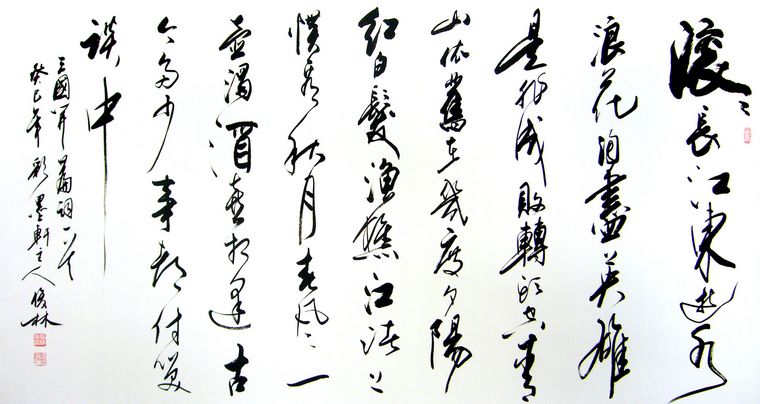 滚〻長江東逝水
浪花淘盡英雄
是非成敗轉頭空青
山依舊在幾度夕陽
紅白髮漁樵江渚上
慣看秋月春風一
壺濁酒喜相逢古
今多少事都付笑
談中
三國開篇詞一首
癸巳年彩墨軒主人俊林